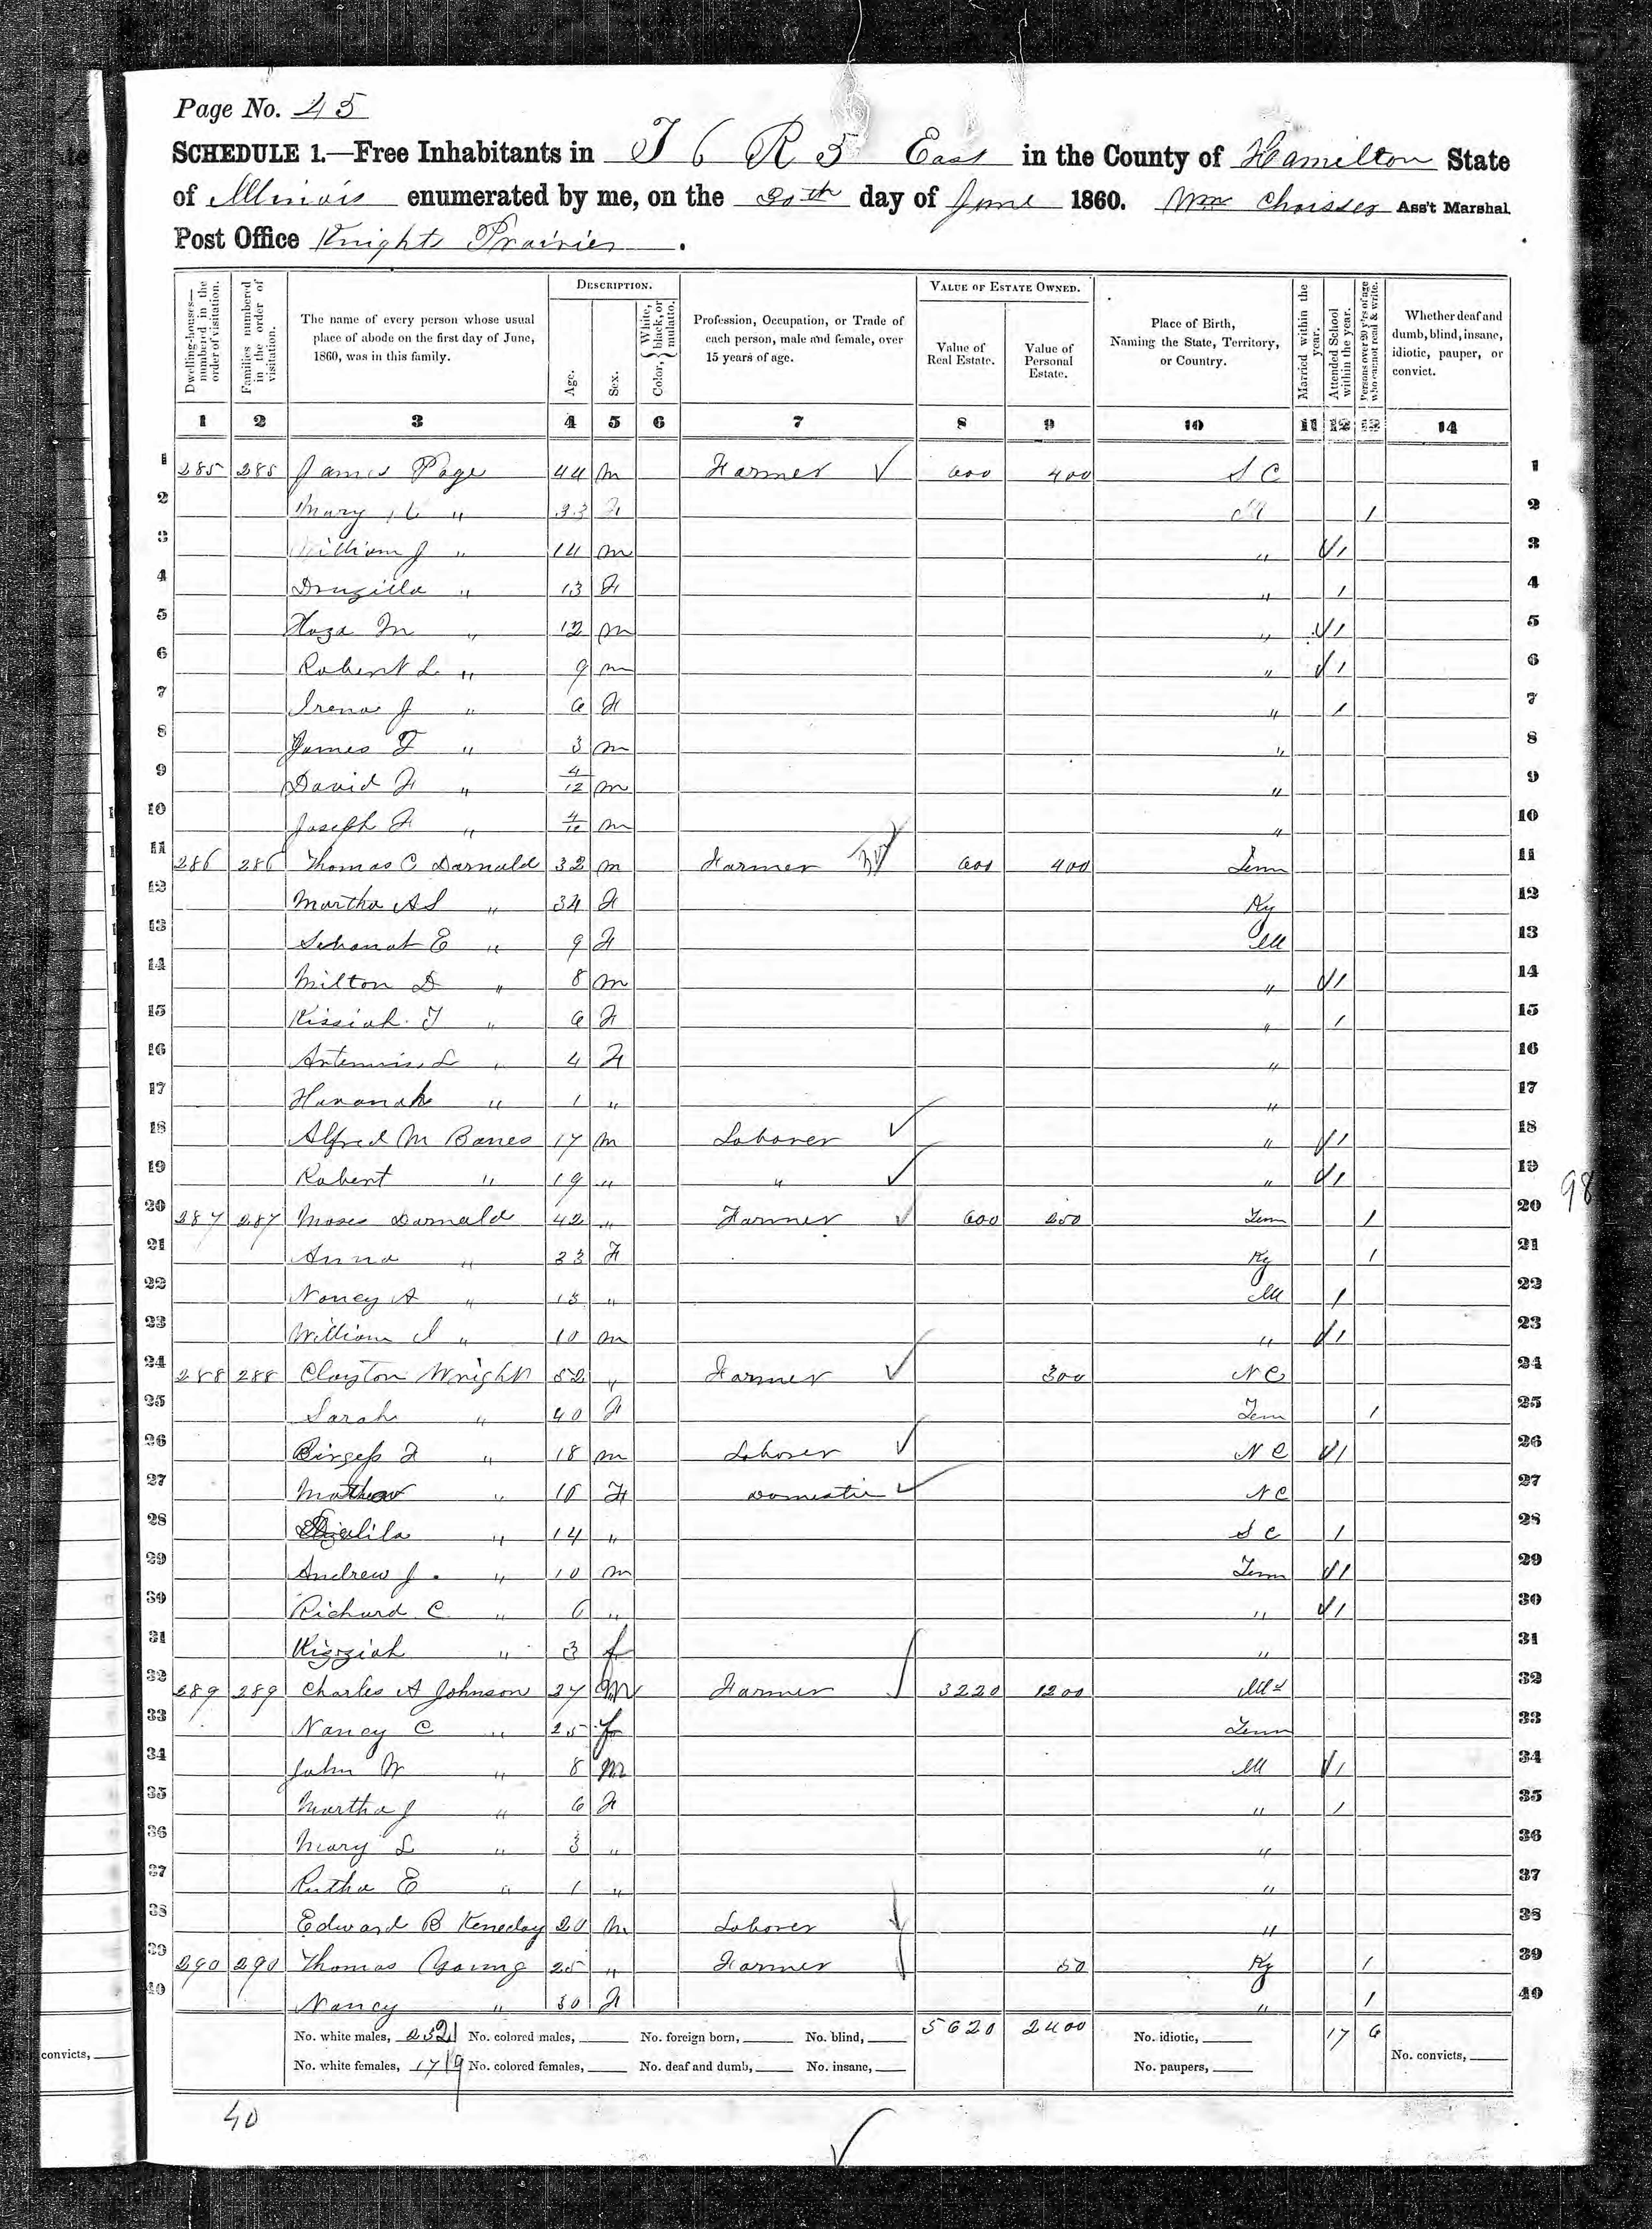 Page No. 45
SCHEDULE 1.—Free Inhabitants in T 6 R 5 East in the County of Hamilton State
of Illinois enumerated by me, on the 20th day of June 1860. Wm Ass't Marshal.
Post Office Knights Prairie.
Dwelling-houses—numbered in the order of visitation.
Families numbered in the order of visitation.
The name of every person whose usual place of abode on the first day of June, 1860, was in this family.
DESCRIPTION.
Age.
Sex.
Color, { White, black, or mulatto.
Profession, Occupation, or Trade of each person, male and female, over 15 years of age.
VALUE OF ESTATE OWNED.
Value of Real Estate.
Value of Personal Estate.
Place of Birth, Naming the State, Territory, or Country.
Married within the year.
Attended School within the year.
Persons over 20 y'rs of age who cannot read & write.
Whether deaf and dumb, blind, insane, idiotic, pauper, or convict.
1 2 3 4 5 6 7 8 9 10 11 12 13 14
1 285 285 James Page 44 m Farmer ✓ 600 400 S C 1
2 Mary " 33 F Ill / 2
3 William J " 14 m " √1 3
4 Druzilla " 13 F " 1 4
5 Hoza M " 12 m " √1 5
6 Robert L " 9 m " √1 6
7 Irena J " 6 F " 1 7
8 James F " 3 m " 8
9 David F " 4/12 m " 9
10 Joseph F " 4/12 m " 10
11 286 286 Thomas C Darnald 32 m Farmer 600 400 Tenn 11
12 Martha A S " 34 F Ky 12
13 E " 9 F Ill 13
14 Milton D " 8 m " √1 14
15 Kissiah T " 6 F " 1 15
16 Artemis L " 4 F " 16
17 Hananah " 1 " " 17
18 Alfred M Banes 17 m Laborer ✓ " √1 18
19 Robert " 19 " " ✓ " √1 19
20 287 287 Moses Darnald 42 " Farmer ✓ 600 250 Tenn / 20
21 Anna " 33 F Ky / 21
22 Nancy A " 13 " Ill 1 22
23 William J " 10 m " √1 23
24 288 288 Clayton Wright 52 " Farmer ✓ 300 N C 24
25 Sarah " 40 F Tenn / 25
26 Birgess F " 18 m Laborer ✓ N C √1 26
27 " F Domestic ✓ N C 27
28 " 14 " S C 1 28
29 Andrew J " 10 m Tenn √1 29
30 Richard C " 6 " " √1 30
31 Kizziah " 3 f " 31
32 289 289 Charles A Johnson 27 M Farmer 3220 1200 32
33 Nancy C " 25 f Tenn 33
34 John W " 8 M Ill √1 34
35 Martha J " 6 F " 1 35
36 Mary L " 3 " " 36
37 Rutha E " 1 " " 37
38 Edward B Keneday 20 m Laborer " 38
39 290 290 Thomas Young 25 " Farmer 50 Ky / 39
40 Nancy " 30 F " / 40
No. white males, No. colored males, No. foreign born, No. blind, 5620 2400 No. idiotic, 17 6
No. white females, No. colored females, No. deaf and dumb, No. insane, No. paupers, No. convicts,
convicts,
98
40